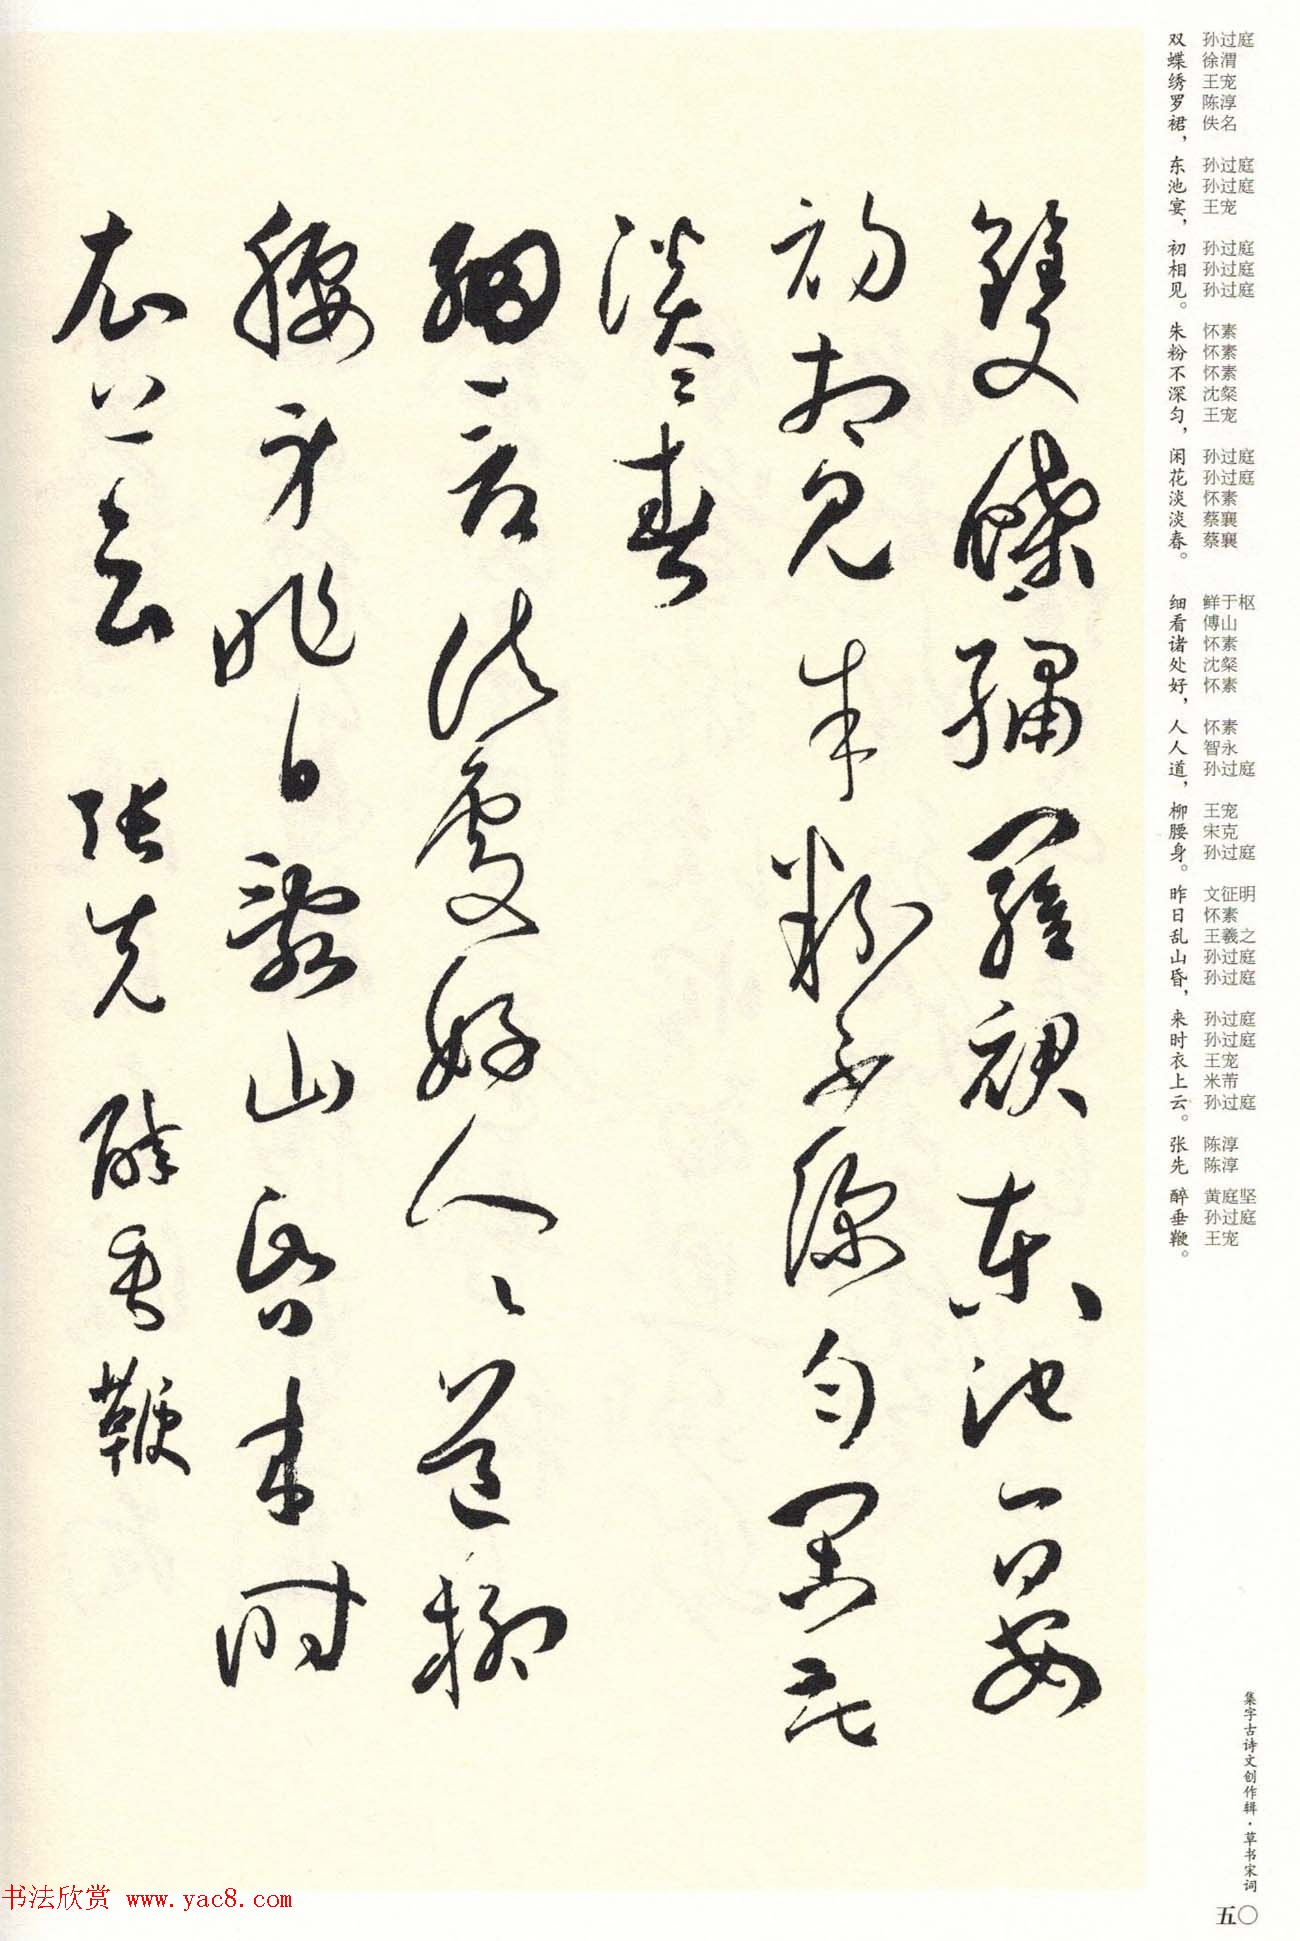 雙蝶繡羅裙東池宴
初相見朱粉不深勻閑花
淡淡春
細看諸處好人人道柳
腰身昨日亂山昏來時
衣上雲 張先 醉垂鞭
双蝶绣罗裙，东池宴，初相见。朱粉不深匀，闲花淡淡春。细看诸处好，人人道，柳腰身。昨日乱山昏，来时衣上云。张先 醉垂鞭。
孙过庭 徐渭 王宠 陈淳 佚名 孙过庭 孙过庭 王宠 孙过庭 孙过庭 孙过庭 怀素 怀素 怀素 沈粲 王宠 孙过庭 孙过庭 怀素 蔡襄 蔡襄 鲜于枢 傅山 怀素 沈粲 怀素 怀素 智永 孙过庭 王宠 宋克 孙过庭 文征明 怀素 王羲之 孙过庭 孙过庭 孙过庭 孙过庭 王宠 米芾 孙过庭 陈淳 陈淳 黄庭坚 孙过庭 王宠
集字古诗文创作辑·草书宋词
五〇
书法欣赏 www.yac8.com